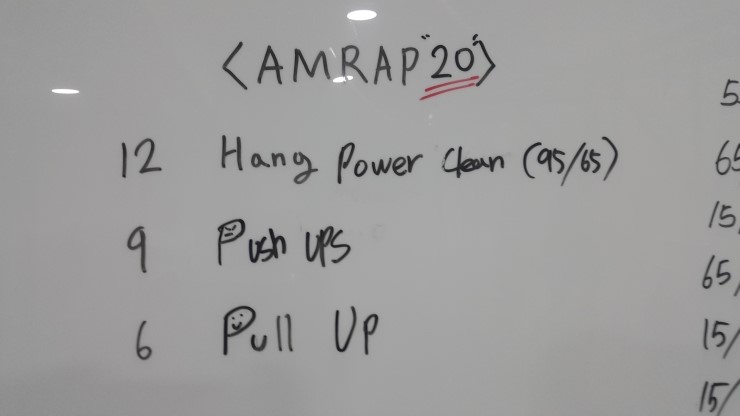 <AMRAP "20">
12 Hang Power Clean (95/65)
9 Push UPS
6 Pull UP
5
65
15
65/
15/
15/